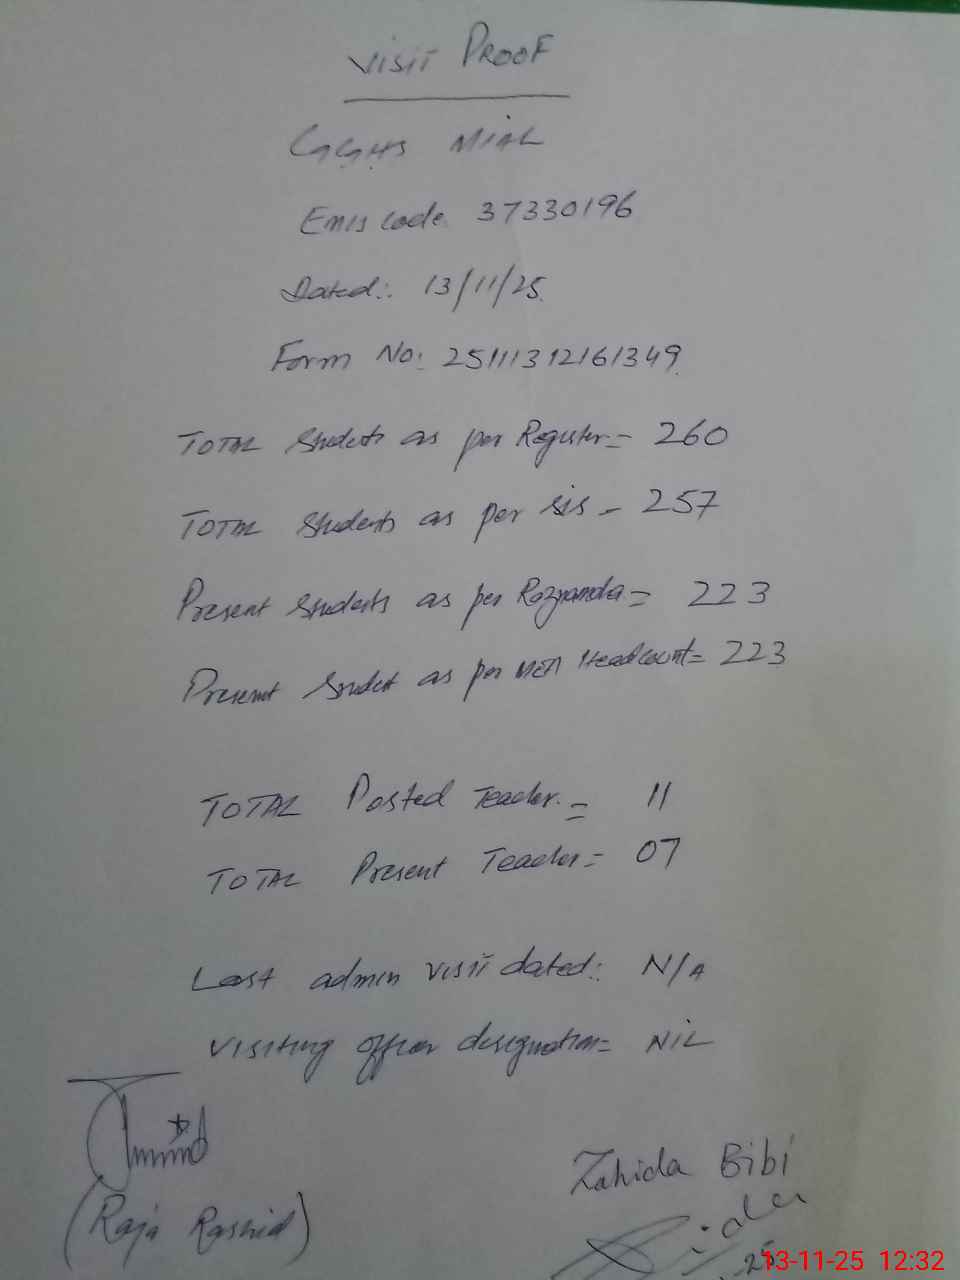 VISIT PROOF
GGHS MIAL
Emis code 37330196
Dated: 13/11/25
Form No: 25111312161349
TOTAL Students as per Register = 260
TOTAL Students as per SIS - 257
Present Students as per Roznamcha = 223
Present Student as per MEA Headcount = 223
TOTAL Posted Teacher = 11
TOTAL Present Teacher = 07
Last admin visit dated: N/A
Visiting officer designation = NIL
(Raja Rashid)
Zahida Bibi
13-11-25 12:32